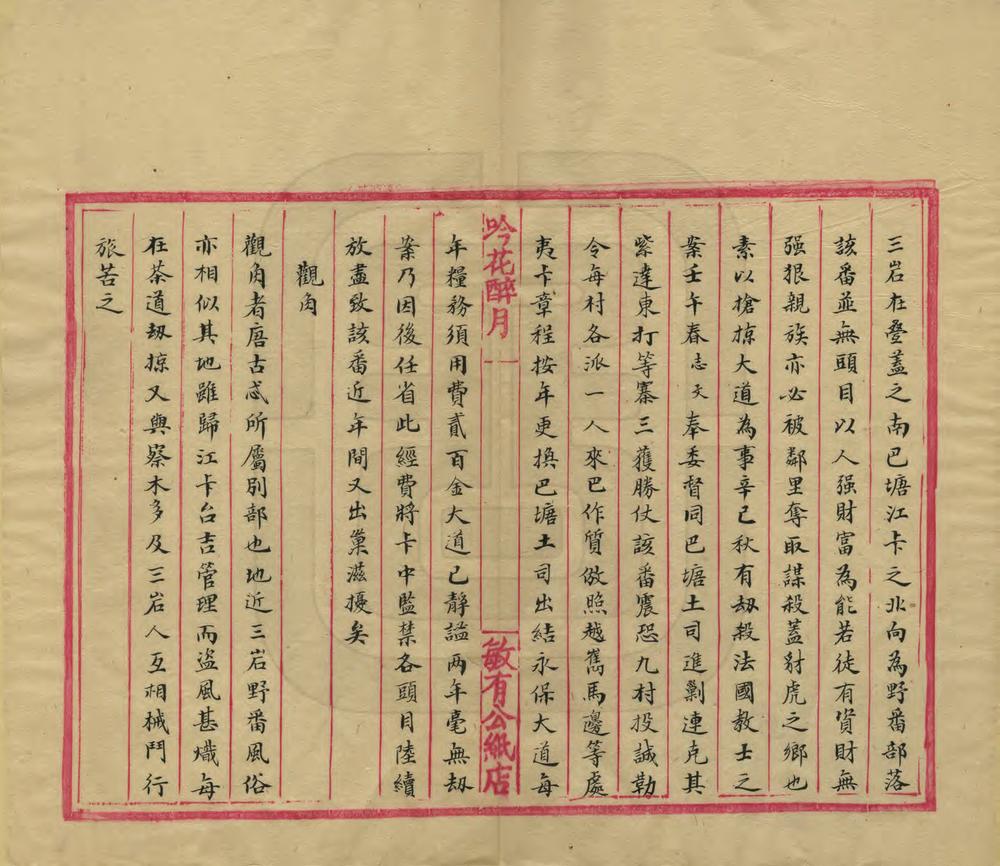 三岩在疊蓋之南巴塘江卡之北向為野番部落
該番並無頭目以人强財富為能若徒有資財無
强狠親族亦必被鄰里奪取謀殺蓋豺虎之鄉也
素以搶掠大道為事辛巳秋有刼殺法國教士之
案壬午春志文奉委督同巴塘土司進剿連克其
紫達東打等寨三獲勝仗該番震恐九村投誠勒
令每村各派一人來巴作質倣照越嶲馬邊等處
夷卡章程按年更換巴塘土司出結永保大道每
吟花醉月
敏有公紙店
年糧務須用費貳百金大道已靜謐两年毫無刼
案乃因後任省此經費將卡中監禁各頭目陸續
放盡致該番近年間又出巢滋擾矣
觀角
觀角者唐古忒所屬別部也地近三岩野番風俗
亦相似其地雖歸江卡台吉管理而盜風甚熾每
在茶道刼掠又與察木多及三岩人互相械鬥行
旅苦之